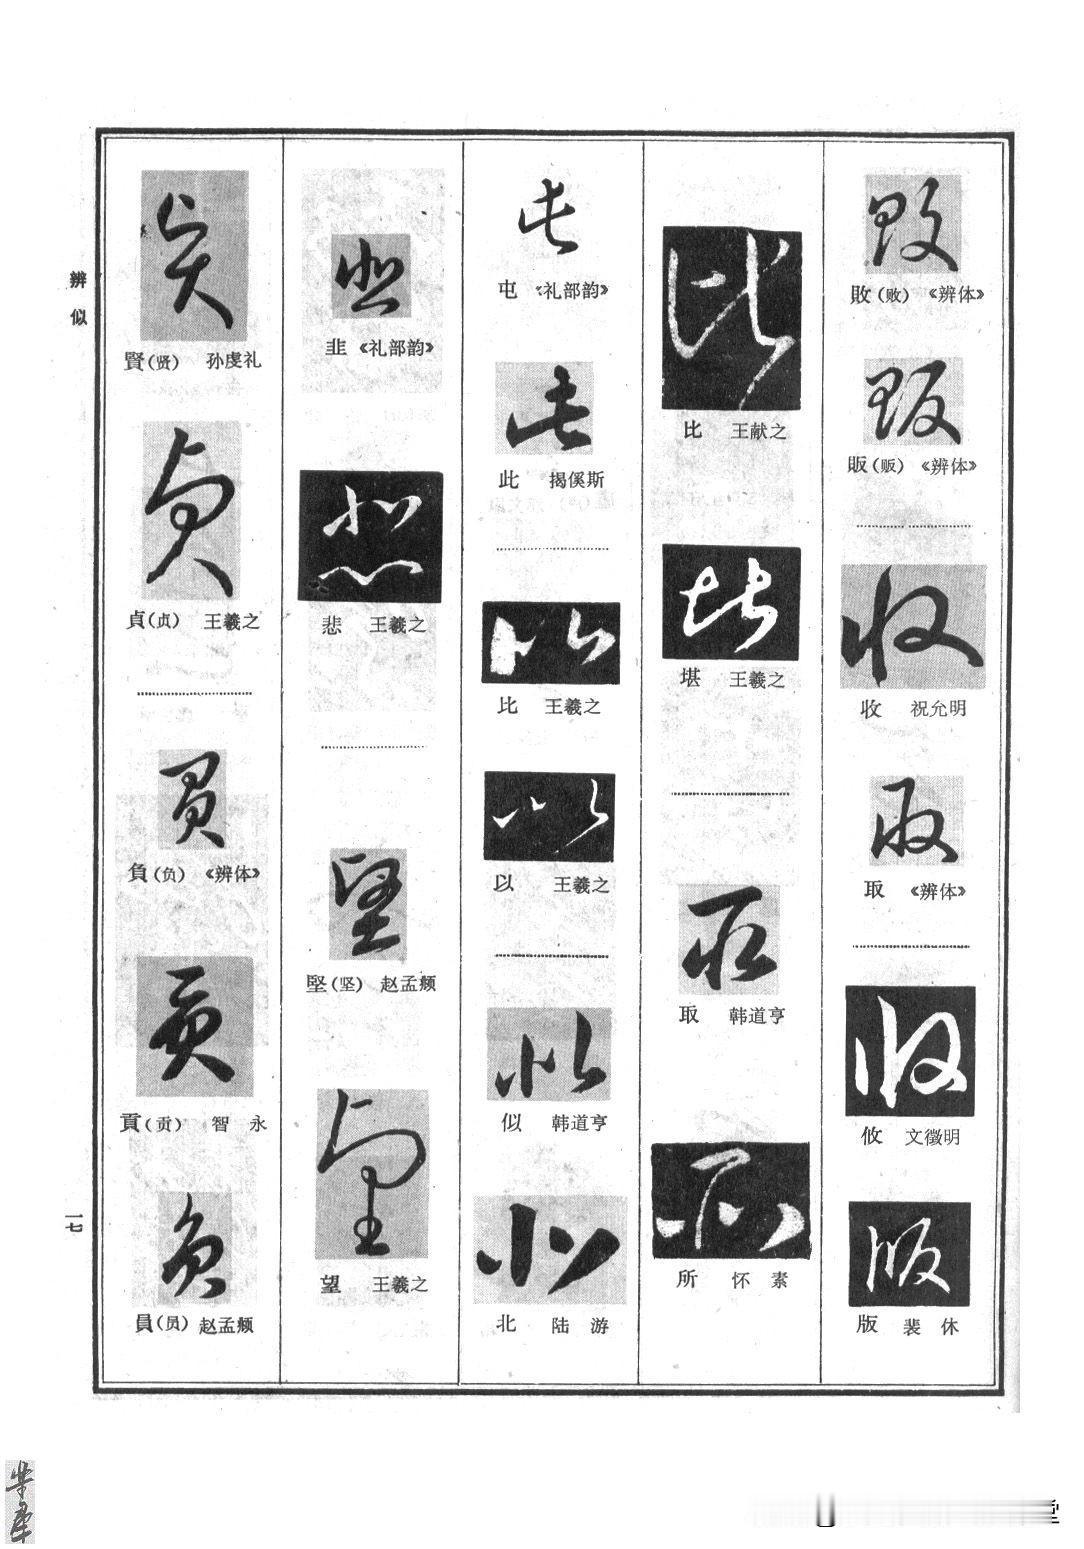 敗(败) 《辨体》
販(贩) 《辨体》
收 祝允明
取 《辨体》
攸 文徵明
版 裴休
比 王献之
堪 王羲之
取 韩道亨
所 怀素
屯 《礼部韵》
此 揭傒斯
比 王羲之
以 王羲之
似 韩道亨
北 陆游
韭 《礼部韵》
悲 王羲之
堅(坚) 赵孟頫
望 王羲之
賢(贤) 孙虔礼
貞(贞) 王羲之
負(负) 《辨体》
貢(贡) 智永
員(员) 赵孟頫
辨似
一七